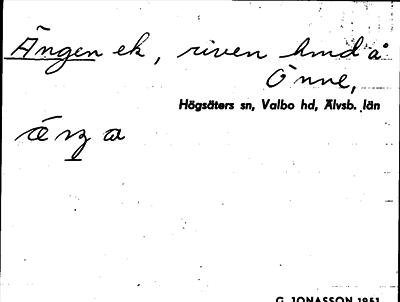 Ängen ek, riven hmd å
Önne,
Högsäters sn, Valbo hd, Älvsb. län
G. JONASSON 1951